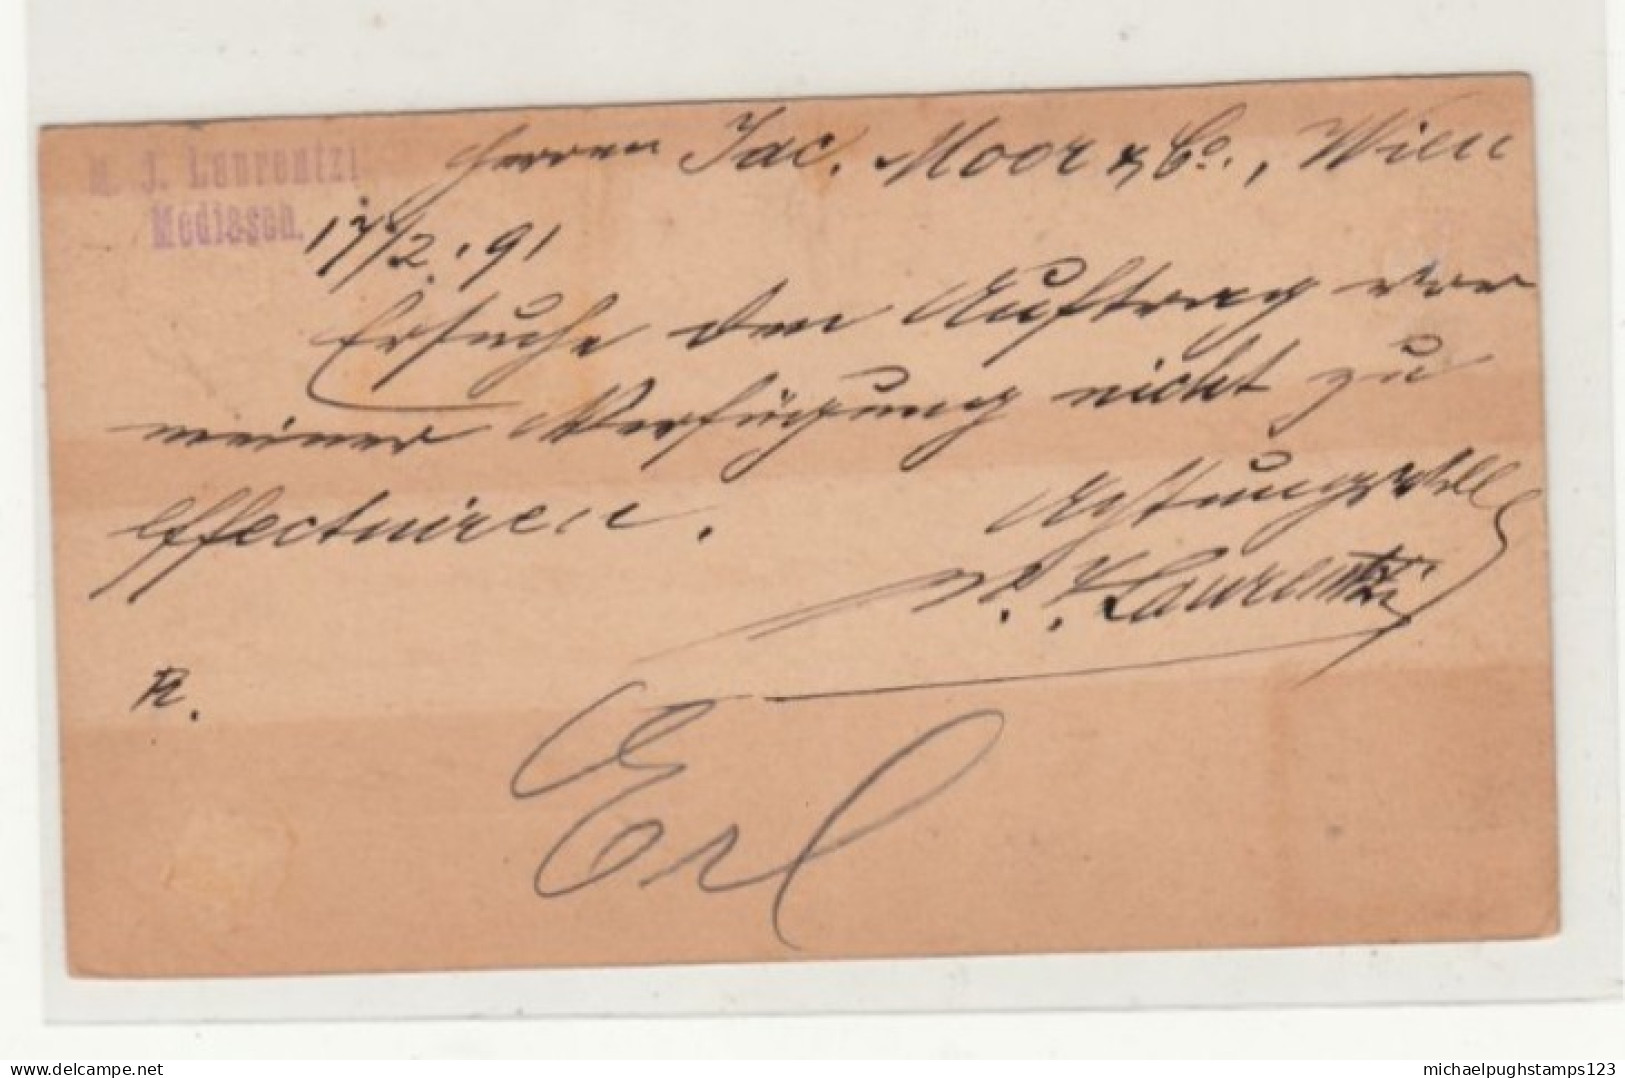 J. Laurentzi
Mediasch.
Herren Jac. Moor & Co., Wien
17/2. 91
Ersuche den Auftrag vor
meiner Verfügung nicht zu
effectuiren.
Achtungsvoll
J. Laurentzi
R.
Erl
michaelpughstamps123